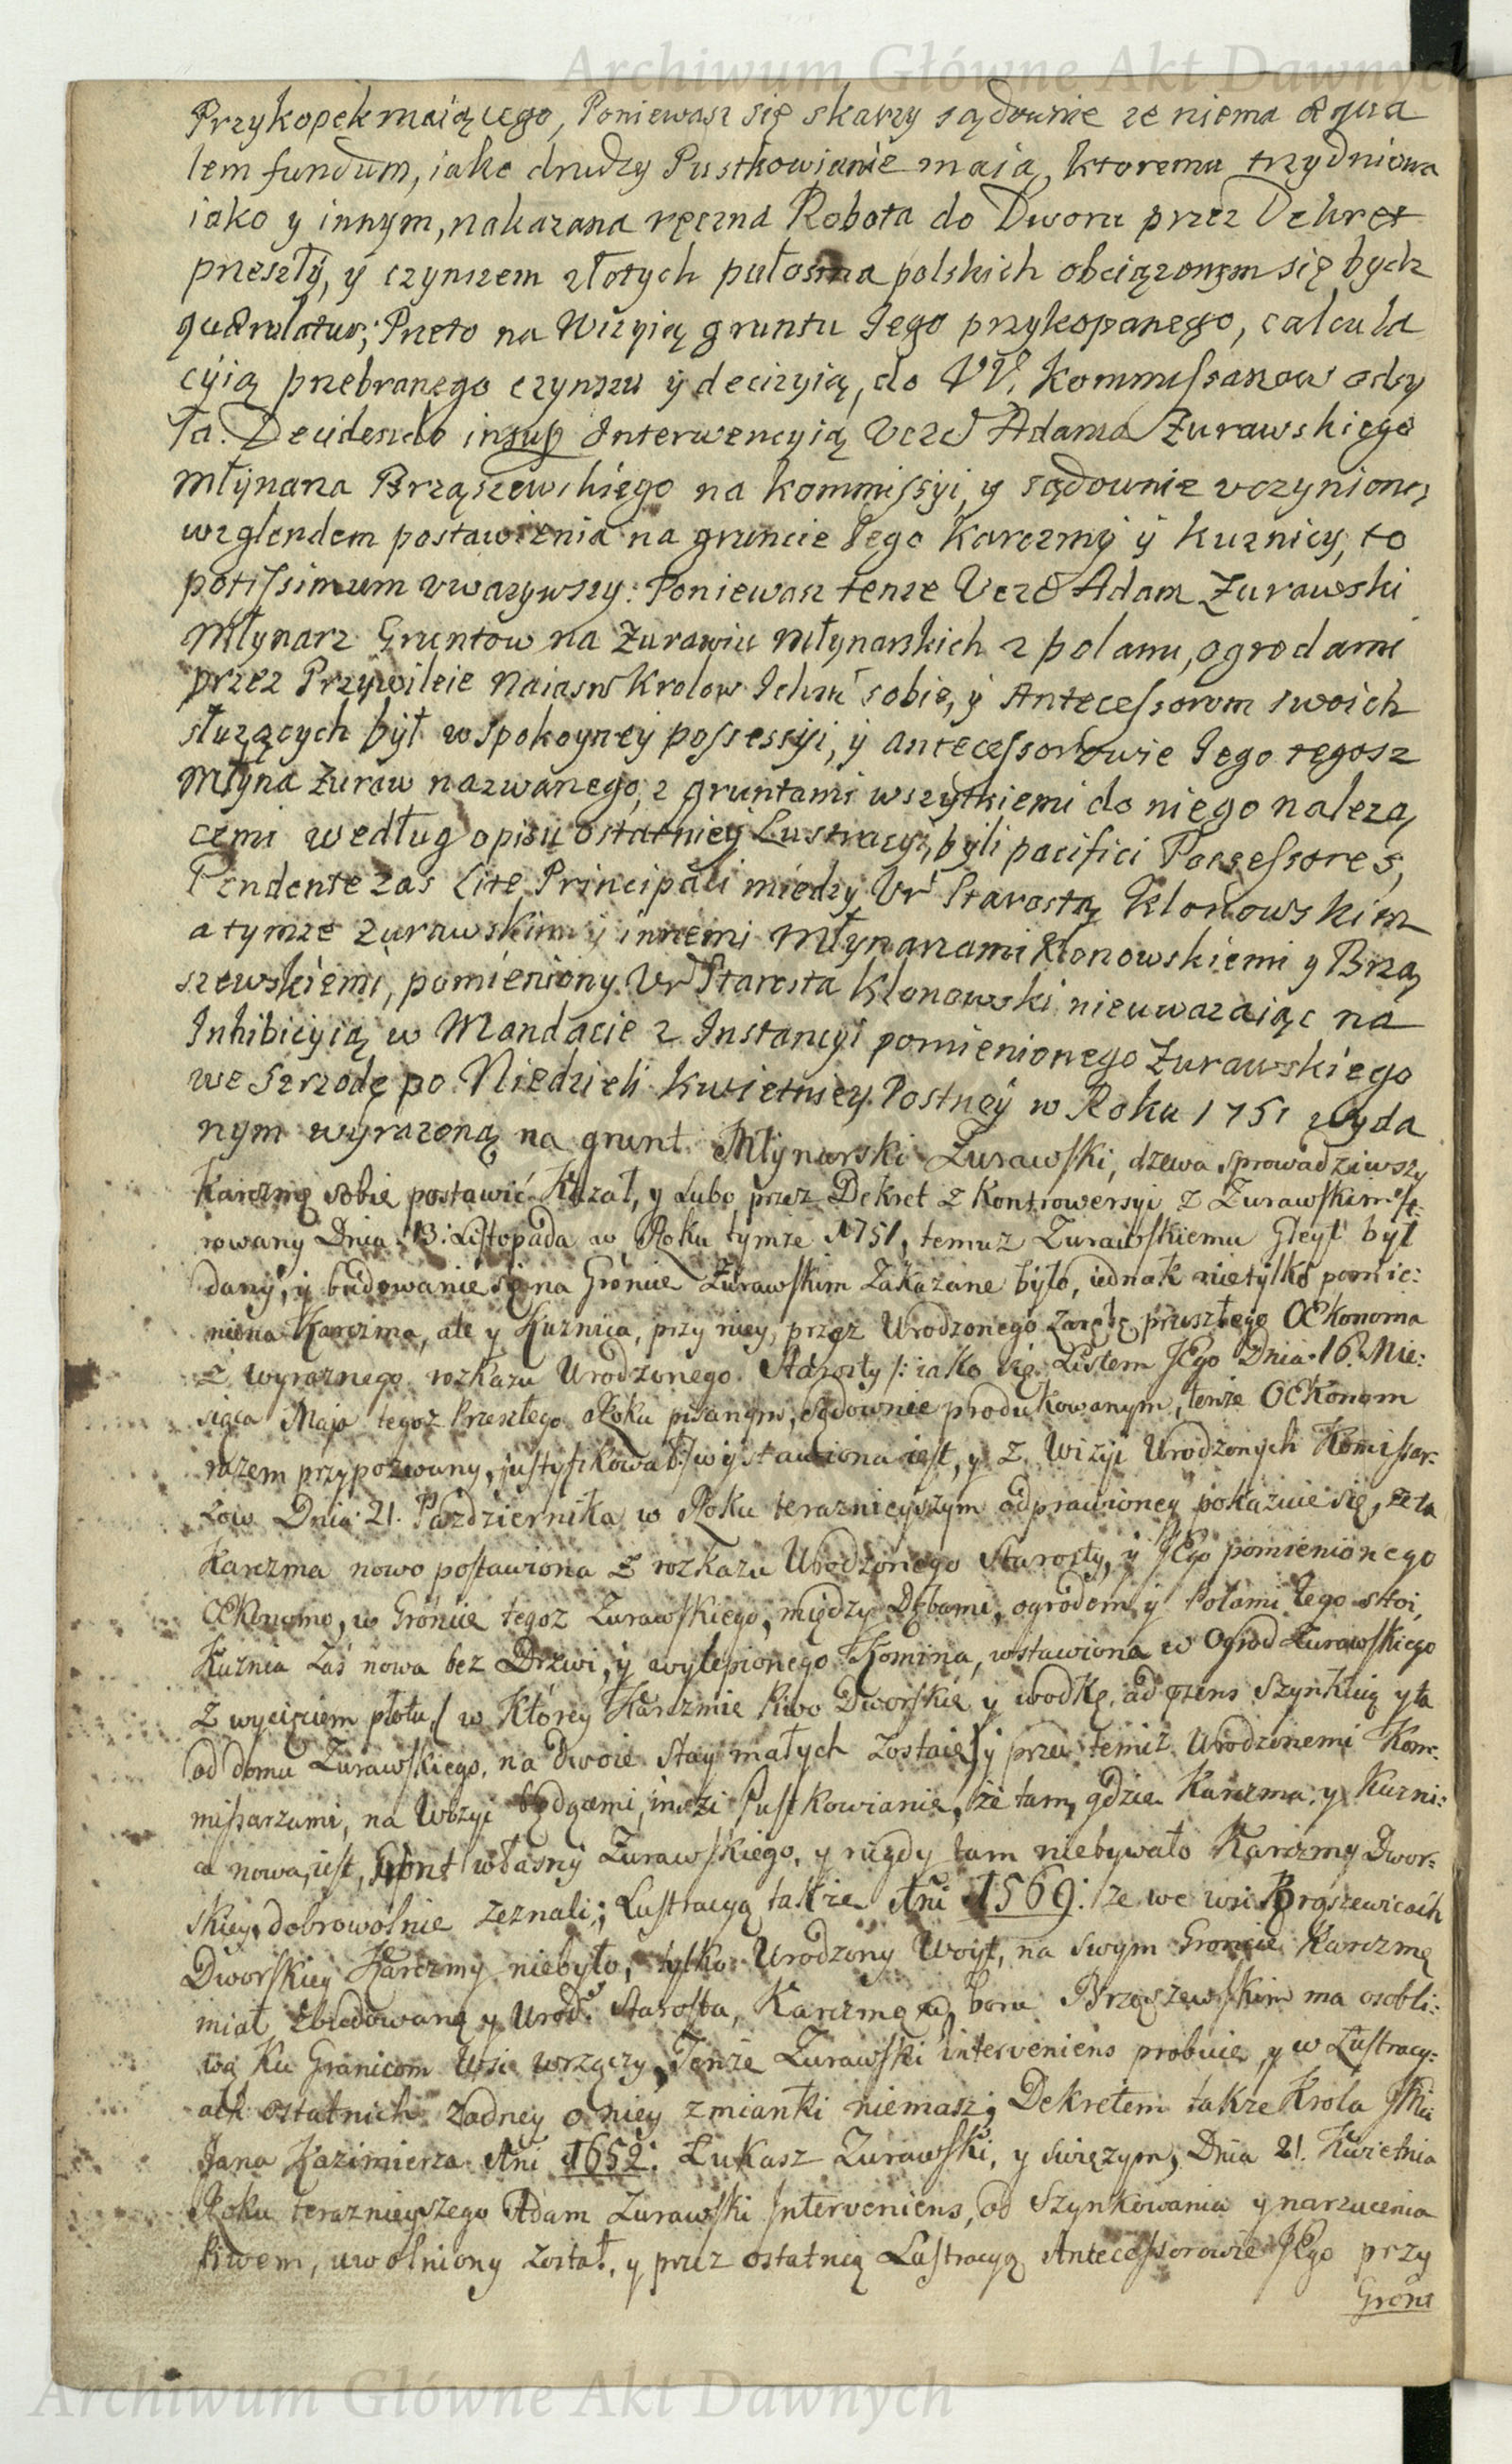 Archiwum Główne Akt Dawnych
Przykopek maiącego, Poniewasz się skarzy sądownie ze niema aequa
lem fundum, iako drudzy Pustkowianie maią, ktoremu trzydniowa
iako y innym, nakazana ręczna Robota do Dworu przez Dekret
przeszły, y czynszem złotych pułosma polskich obciązonym się bydz
quaerulatur; Przeto na Wizyią gruntu Jego przykopanego, calcula
cyią przebranego czynszu y decizyią, do W. Kommissarzow odsy
ła. Decidendo insup Interwencyią Vczc Adama Zurawskiego
Młynarza Brząszewskiego na kommissyi, y sądownie vczynioną
wzglendem postawienia na gruncie Jego Karczmy y kuznicy, to
potissimum vwazywszy: Poniewasz tenze Vczc Adam Zurawski
Młynarz Gruntow na Zurawiu Młynarskich z polami, ogrodami
przez Przywileie Naiasn Krolow Ichm sobie, y Antecessorom swoich
słuzących był w spokoyney possessyi, y antecessorowie Jego tegosz
Młyna Zuraw nazwanego, z gruntami wszytkiemi do niego nalezą
cemi według opisu ostatniey Lustracyi, byli pacifici Possessores,
Pendente zas Lite Principali miedzy Vr Starostą Klonowskim
a tymze Zurawskim y innemi Młynarzami Klonowskiemi y Brzą
szewskiemi, pomieniony Vr Starosta Klonowski nieuwazaiąc na
Inhibicyią w Mandacie z Instancyi pomienionego Zurawskiego
we Szrzodę po Niedzieli Kwietniey Postney w Roku 1751 wyda
nym wyrazoną na grunt Młynarski Zurawski, dzewa sprowadziwszy
Karczmę sobie postawić Kazał, y Lubo przez Dekret z Kontrowersyi z Zurawskim fe:
rowany Dnia 13. Listopada w Roku tymze 1751, temuz Zurawskiemu Gleyt był
dany, y budowanie się na Gróncie Zurawskim zakazane było, iednak nietylko pomie:
niona Karczma, ale y Kuznica, przy niey, przez Urodzonego Zarębę przeszłego OEkonoma
z wyraznego rozkazu Urodzonego Starosty /: iako się Listem JEgo Dnia 16. Mie:
siąca Maja tegoz Przeszłego Roku pisanym, Sądownie produkowanym, tenze OEkonom
razem przypozwany, justyfikował :/ wystawiona iest, y z Wizyi Urodzonych Komissar:
zow Dnia 21. Pazdziernika w Roku teraznieyszym odprawioney pokazuie się, ze ta
Karczma nowo postawiona z rozkazu Urodzonego Starosty, y JEgo pomienionego
OEkonoma, w Gróncie tegoz Zurawskiego, między Dębami, ogrodem y Polami Jego stoi,
Kuznia zaś nowa bez Drzwi, y wylepionego Komina, wstawiona w Ogrod Zurawskiego
z wycięciem płotu, ( w Którey Karczmie Piwo Dworskie y wodkę, ad praesens Szynkuią y ta
od domu Zurawskiego, na dwoie stay małych zostaie) y przed temiz Urodzonemi Kom:
missarzami, na Wizyi będącemi, inszi Pustkowianie, ze tam, gdzie Karczma, y Kuzni:
a nowa, iest, Grónt własny Zurawskiego, y nigdy tam niebywało Karczmy Dwor:
skiey, dobrowolnie zeznali; Lustracyą takze Ani 1569. ze we wsi Brąszewicach
Dworskiey Karczmy niebyło, tylko Urodzony Woyt, na swym Gróncie Karczmę
miał zbudowaną y Urod. Starosta, Karczmę w boru Brzęszewskim ma osobli:
wą Ku Granicom Wsie wrzączy, Tenze Zurawski interveniens probuie, y w Lustracy:
ach ostatnich zadney o niey zmianki niemasz; Dekretem takze Krola JMci
Jana Kazimierza Ani 1652. Łukasz Zurawski, y swięzym, Dnia 21. Kwietnia
Roku teraznieyszego Adam Zurawski Interveniens, od Szynkowania y narzucenia
Piwem, uwolniony został, y przez ostatnią Lustracyą Antecessorowie JEgo przy
Grónt
Archiwum Główne Akt Dawnych